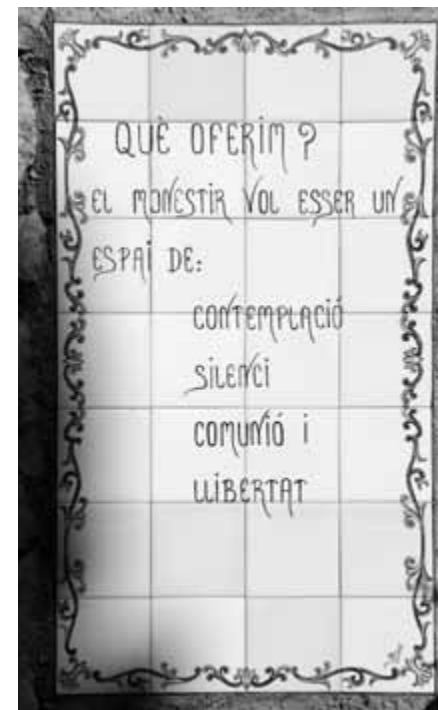 QUÈ OFERIM ?
EL MONESTIR VOL ESSER UN
ESPAI DE:
CONTEMPLACIÓ
SILENCI
COMUNIÓ i
LLIBERTAT